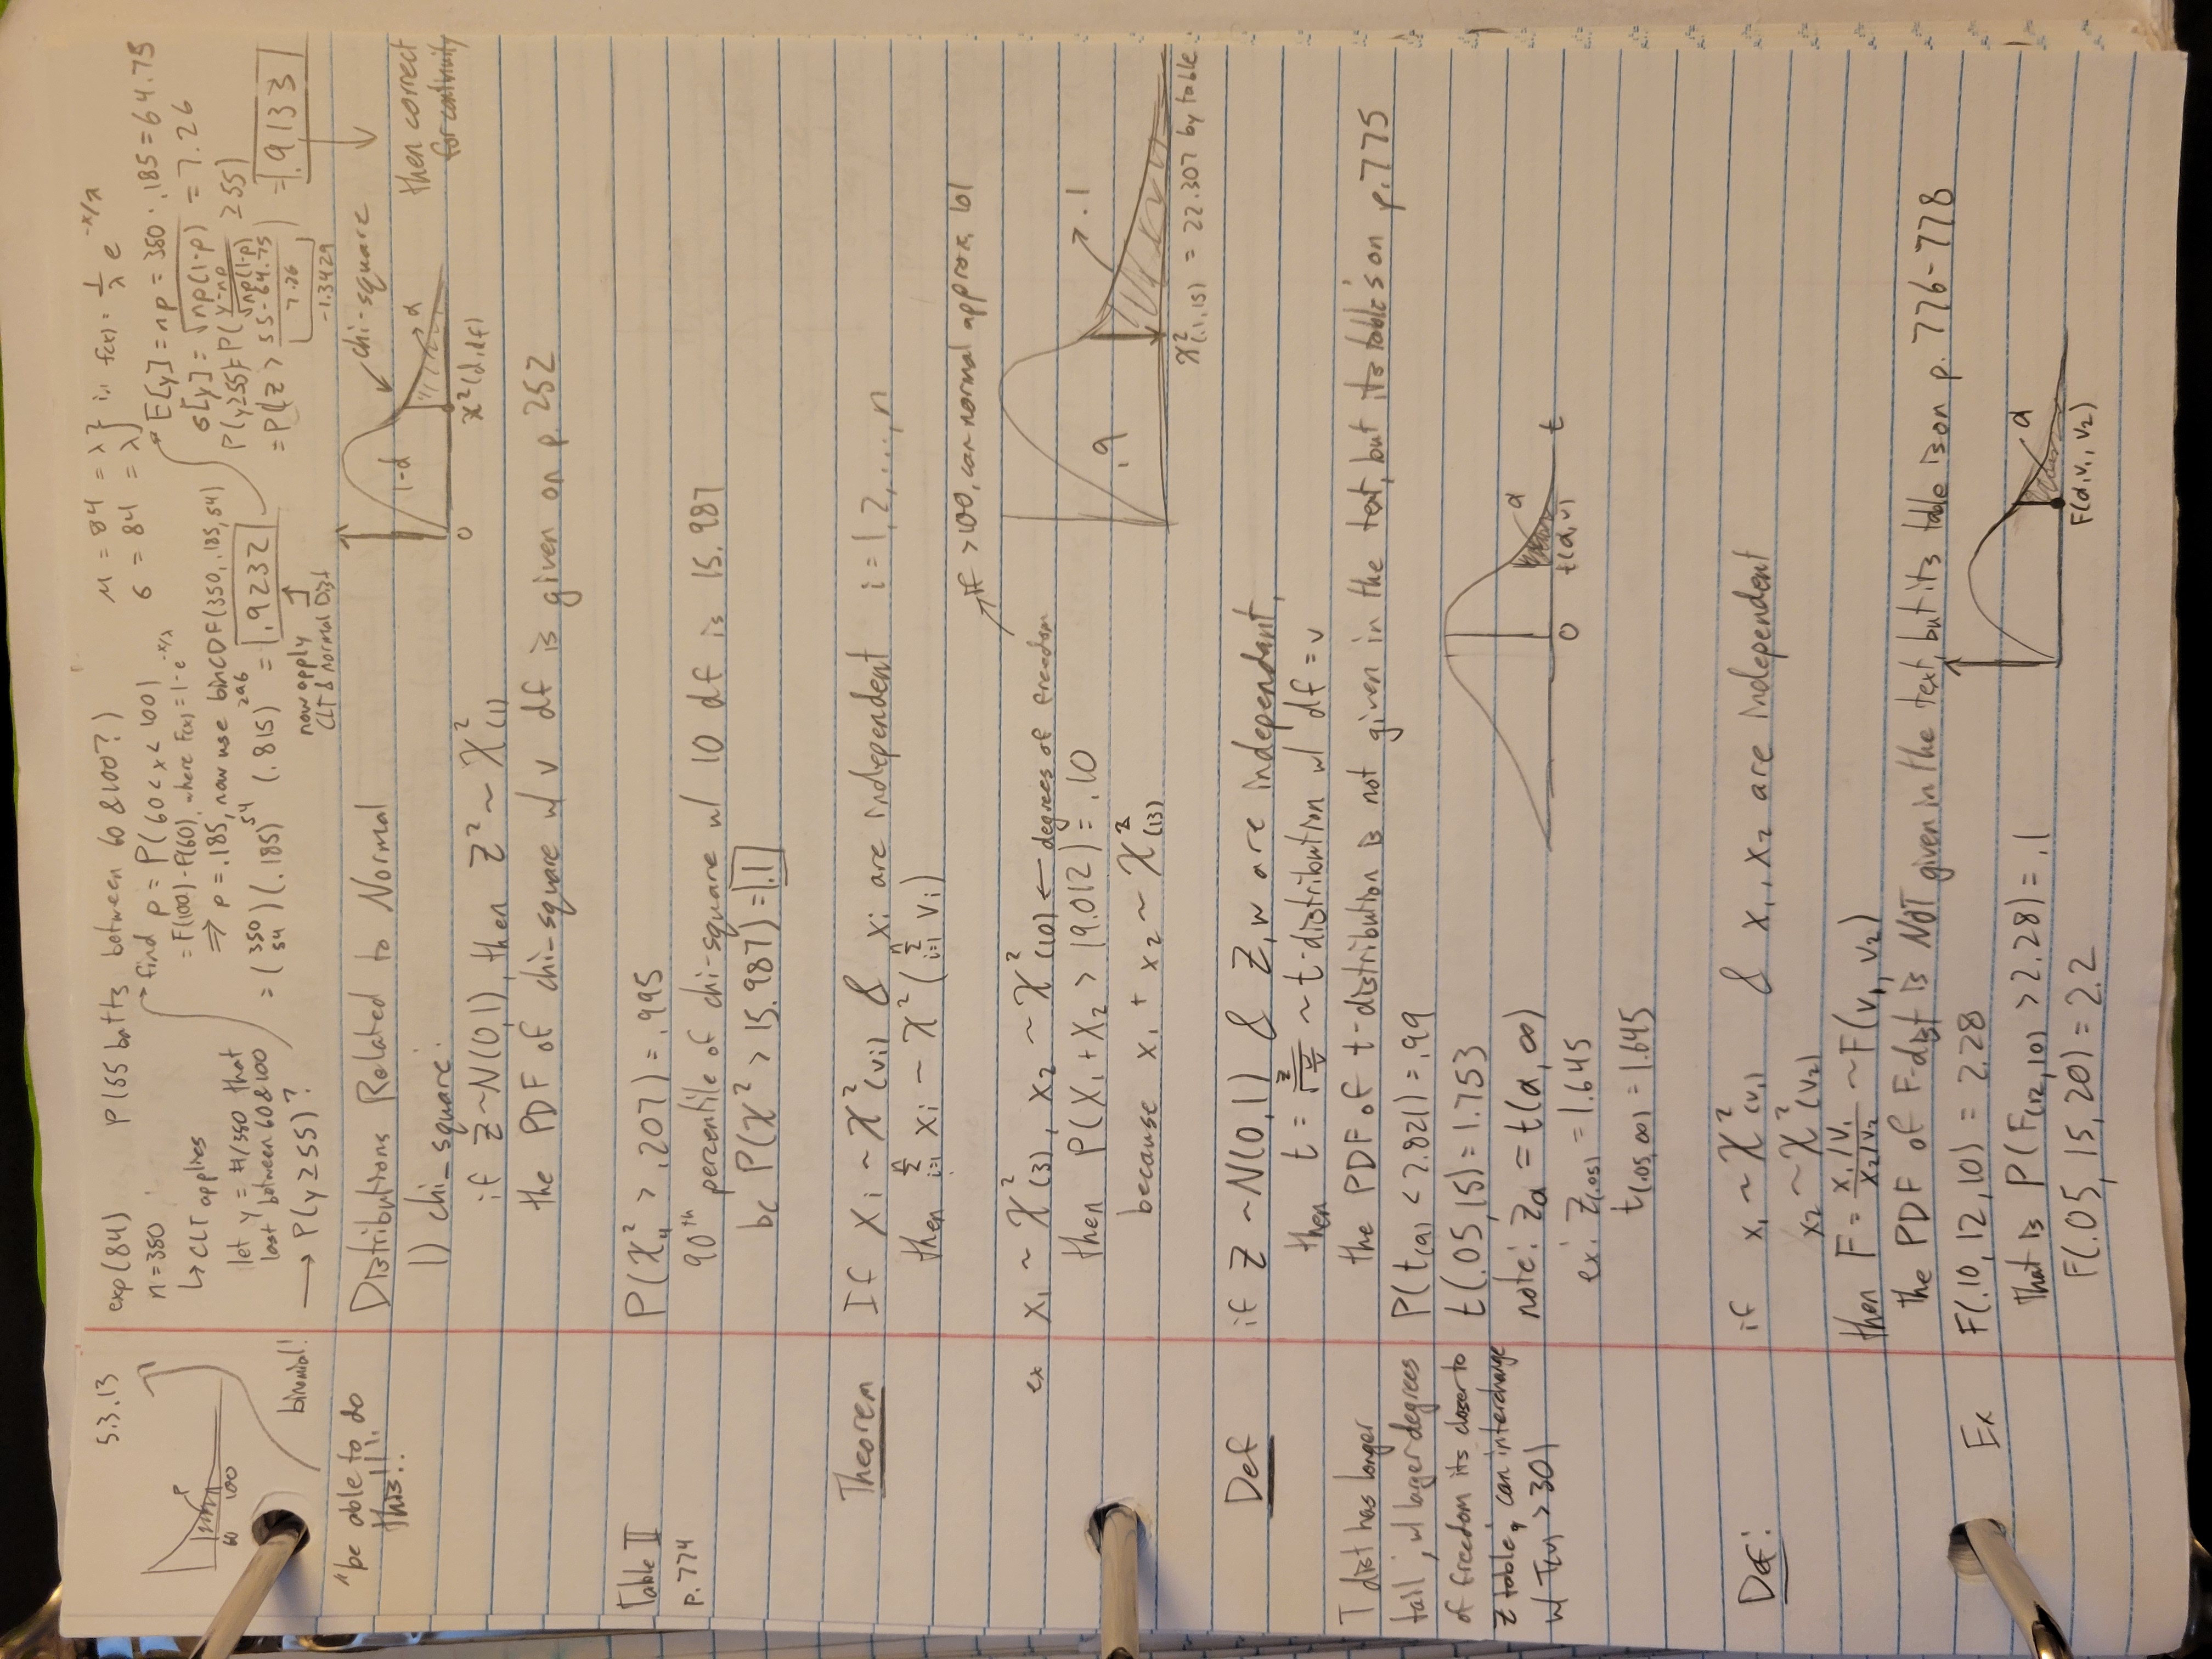 5.3.13
exp(84) P(55 batts between 60 & 100?)
μ = 84 = λ } in f(x) = 1/λ e^(-x/λ)
σ = 84 = λ }
n=350
↳ CLT applies
let y = #/350 that
last between 60 & 100
→ P(y ≥ 55)?
60 100
P
binomial!
find p = P(60 < x < 100)
= F(100) - F(60), where F(x) = 1 - e^(-x/λ)
⇒ p = .185, now use binCDF(350, .185, 54)
= (350 54)(.185)^54 (.815)^296 = .9232
now apply
CLT & normal Dist
E[y] = np = 350 · .185 = 64.75
σ[y] = √np(1-p) = 7.26
P(y≥55) = P( (y-np)/√np(1-p) ≥ 55)
= P(Z > (55-64.75)/7.26 ) = .9133
-1.3429
then correct
for continuity
"be able to do
this!!"
Distributions Related to Normal
chi-square
1-α
α
0
χ²(α,df)
1) chi-square:
if Z~N(0,1), then Z² ~ χ²(1)
the PDF of chi-square w/ v df is given on p. 252
Table II
p. 774
P(χ²₄ > .207) = .995
90th percentile of chi-square w/ 10 df is 15.987
bc P(χ² > 15.987) = .1
Theorem
If Xi ~ χ²(vi) & xi are independent i = 1,2,...,n
then Σ(i=1 to n) xi ~ χ²(Σ(i=1 to n) vi)
if >100, can normal approx lol
ex x₁ ~ χ²(3), x₂ ~ χ²(10) ← degrees of freedom
then P(X₁ + X₂ > 19.012) = .10
because x₁ + x₂ ~ χ²(13)
.9
.1
χ²(.1,15) = 22.307 by table
Def
if Z ~N(0,1) & Z,w are independant,
then t = z/√(w/v) ~ t-distribution w/ df = v
the PDF of t-distribution is not given in the text, but its table's on p.775
T dist has longer
tail, w/ larger degrees
of freedom its closer to
Z table; can interchange
w/ T(v) > 30)
P(t(9) < 2.821) = .99
t(.05,15) = 1.753
note: Zα = t(α,∞)
ex: Z(.05) = 1.645
t(.05,∞) = 1.645
α
0
t(α,v)
t
Def:
if x₁ ~ χ²(v₁) & x₁, x₂ are independent
x₂ ~ χ²(v₂)
then F = (x₁/v₁)/(x₂/v₂) ~ F(v₁, v₂)
the PDF of F-dist is NOT given in the text, but its table is on p. 776-778
Ex
F(.10, 12, 10) = 2.28
that is P(F(12,10) > 2.28) = .1
F(.05, 15, 20) = 2.2
α
F(α,v₁, v₂)